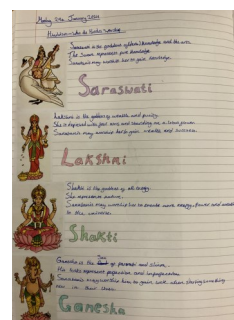 Monday 29th January 2024
Hinduism - Who do Hindus Worship
Saraswati is the goddess of learning, knowledge and the arts.
The Swan represents pure knowledge.
Somebody may worship her to gain knowledge.
Saraswati
Lakshmi is the goddess of wealth and purity.
She is depicted with four arms and standing on a lotus flower.
Somebody may worship her to gain wealth and success.
Lakshmi
Shakti is the goddess of all energy.
She represents nature.
Somebody may worship her to create more energy, power and
in the universe.
Shakti
Ganesha is the Son of parvati and shiva.
His tusks represent perfection and imperfection.
Somebody may worship him to gain luck when starting something
new in their lives.
Ganesha